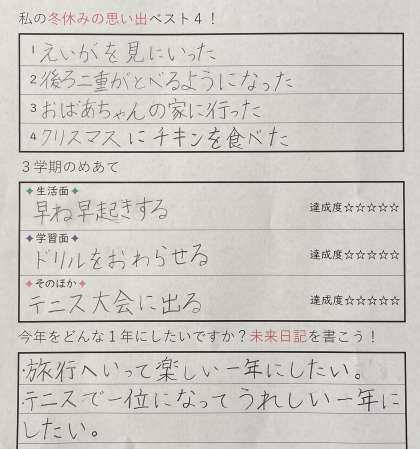 私の冬休みの思い出ベスト4！
1 えいがを見にいった
2 後ろ二重がとべるようになった
3 おばあちゃんの家に行った
4 クリスマスにチキンを食べた
3学期のめあて
✦生活面✦
早ね早起きする
達成度☆☆☆☆☆
✦学習面✦
ドリルをおわらせる
達成度☆☆☆☆☆
✦そのほか✦
テニス大会に出る
達成度☆☆☆☆☆
今年をどんな1年にしたいですか？未来日記を書こう！
・旅行へいって楽しい一年にしたい。
・テニスで一位になってうれしい一年に
したい。